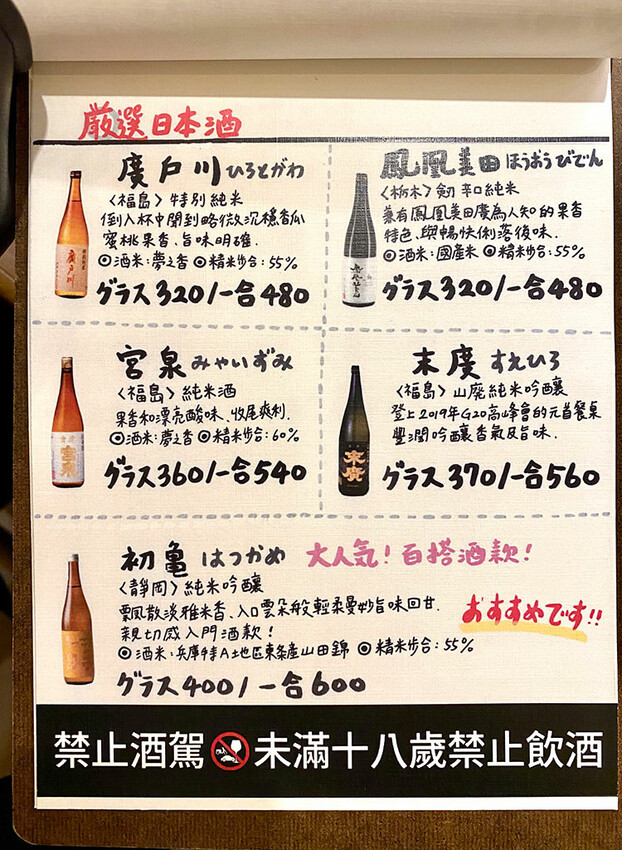 厳選日本酒
廣戶川 ひろとがわ
〈福島〉特別純米
倒入杯中聞到略微沉穩香瓜
蜜桃果香、旨味明確.
◎酒米:夢之香 ◎精米步合:55%
グラス320/一合480
鳳凰美田 ほうおうびでん
〈栃木〉剱 辛口純米
兼有鳳凰美田廣為人知的果香
特色,與暢快俐落後味.
◎酒米:國產米 ◎精米步合:55%
グラス320/一合480
宮泉 みゃいずみ
〈福島〉純米酒
果香和漂亮酸味、收尾爽利.
◎酒米:夢之香 ◎精米步合:60%
グラス360/一合540
末廣 すえひろ
〈福島〉山廃純米吟釀
登上2019年G20高峰會的元首餐桌
豐潤吟釀香氣及旨味.
グラス370/一合560
初亀 はつかめ 大人気!百搭酒款!
〈靜岡〉純米吟釀
飄散淡雅米香、入口雲朵般輕柔曼妙旨味回甘.
親切感入門酒款!
おすすめです!!
◎酒米:兵庫特A地區東条產山田錦 ◎精米步合:55%
グラス400/一合600
禁止酒駕 未滿十八歲禁止飲酒
廣戶川
宮泉
末廣